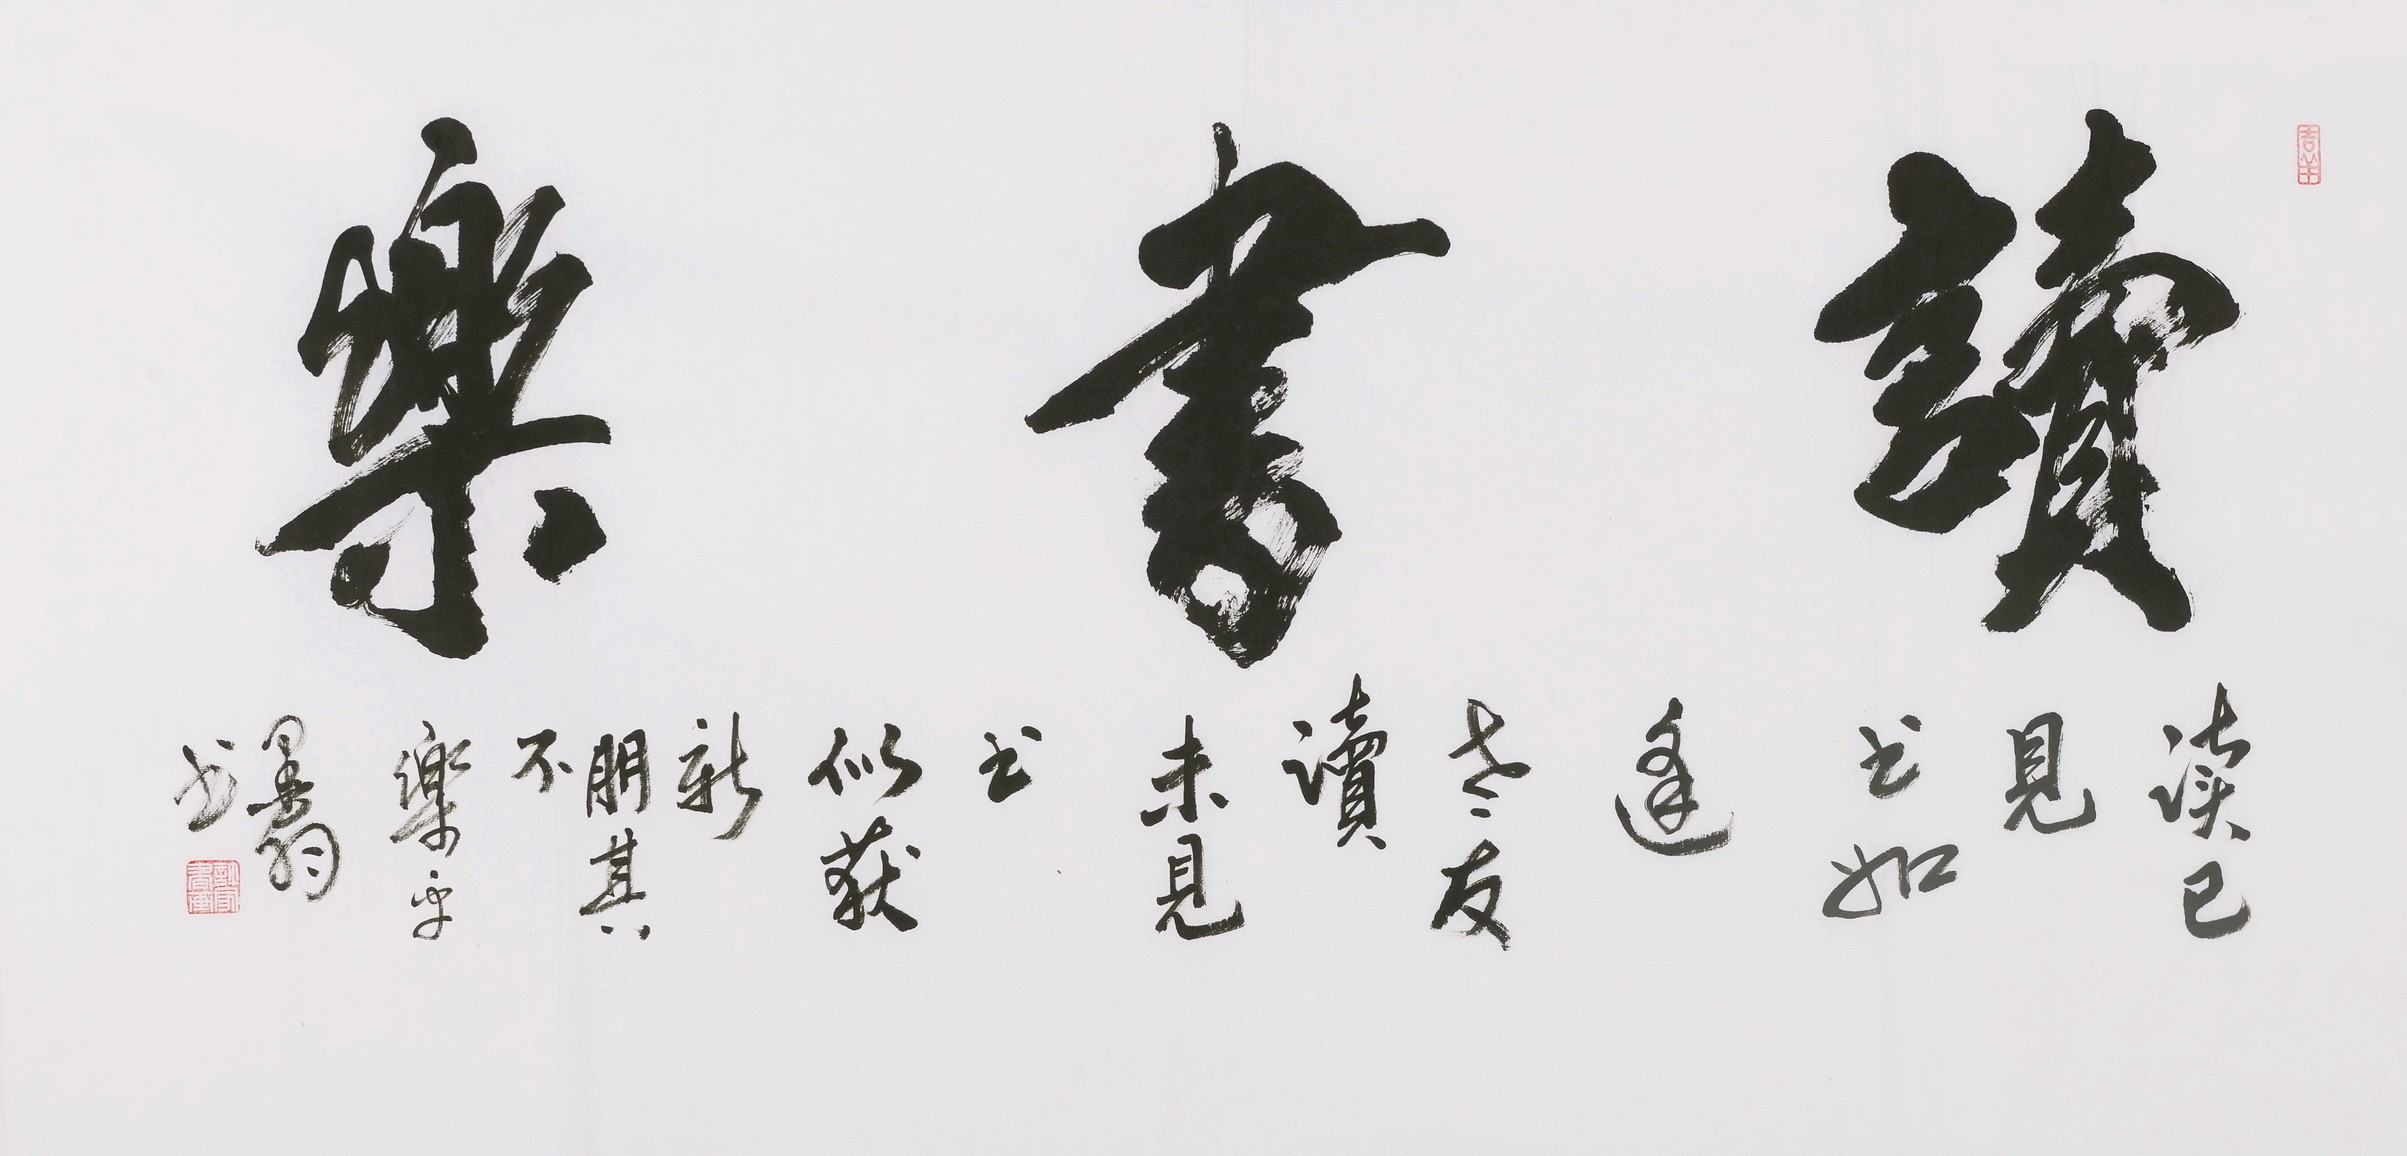 讀書樂
读已
見
书如
逢
老友
讀
未見
书
似获
新
朋其
不
樂乎
墨翁
书